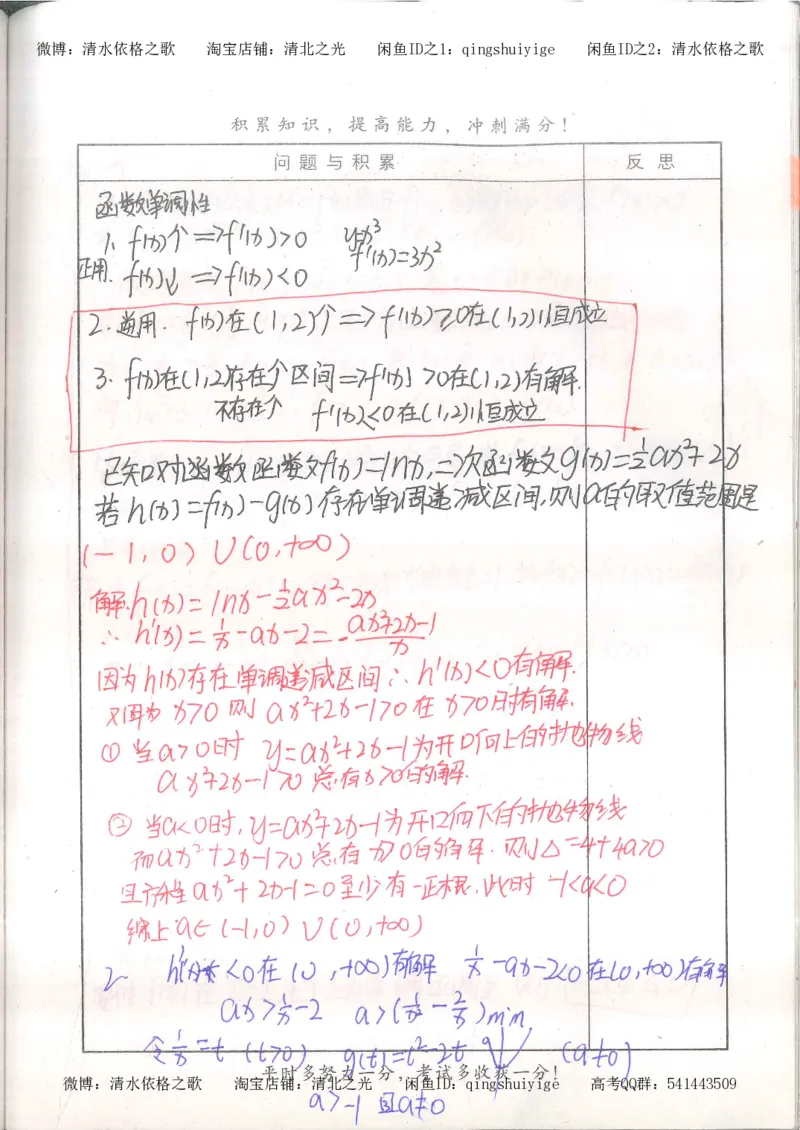 微博：清水依格之歌 淘宝店铺：清北之光 闲鱼ID之1：qingshuiyige 闲鱼ID之2：清水依格之歌
积累知识，提高能力，冲刺满分！
问题与积累 反思
函数单调性
1、f(x)↑ => f'(x)>0 y=x³
f'(x)=3x²
正用. f(x)↓ => f'(x)<0
2. 逆用. f(x)在(1,2)个=>f'(x)≥0在(1,2)以恒成立
3. f(x)在(1,2)存在个区间=>f'(x)>0在(1,2)有解.
不存在个 f'(x)<0在(1,2)以恒成立
已知对函数函数f(x)=lnx,二次函数g(x)=½ax²+2x
若h(x)=f(x)-g(x)存在单调递减区间,则a的取值范围是
(-1,0)∪(0,+∞)
解.h(x)=lnx-½ax²-2x
∴h'(x)=1/x-ax-2=-(ax²+2x-1)/x
因为h(x)存在单调递减区间∴h'(x)<0有解.
又因为x>0则ax²+2x-1>0在x>0时有解.
①当a>0时 y=ax²+2x-1为开口向上的抛物线
ax²+2x-1>0总有x>0的解.
②当a<0时,y=ax²+2x-1为开口向下的抛物线
而ax²+2x-1>0总有x>0的解.则Δ=4+4a>0
且方程ax²+2x-1=0至少有一正根.此时-1<a<0
综上a∈(-1,0)∪(0,+∞)
2、h'(x)<0在(0,+∞)有解 1/x-ax-2<0在(0,+∞)有解
ax>1/x-2 a>(1/x²-2/x)min
令1/x=t (t>0) g(t)=t²-2t (a≠0)
平时多努力一分，考试多收获一分！
微博：清水依格之歌 淘宝店铺：清北之光 闲鱼ID：qingshuiyige 高考QQ群：541443509
a>-1 且a≠0